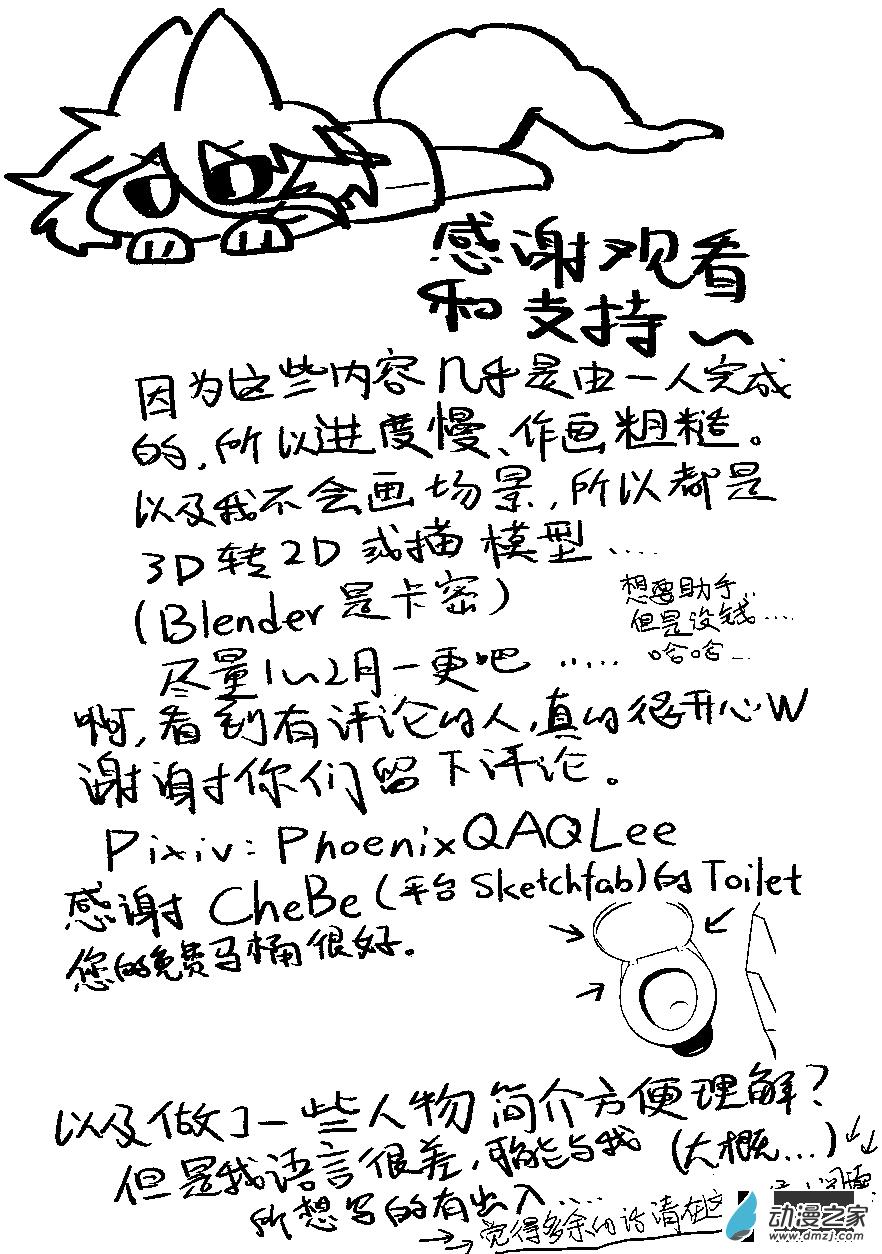 感谢观看
和支持~
因为这些内容几乎是由一人完成
的，所以进度慢、作画粗糙。
以及我不会画场景，所以都是
3D转2D或描模型....
(Blender是卡密)
想要助手..
但是没钱...
哈哈...
尽量1~2月一更吧.....
啊，看到有评论的人，真的很开心W
谢谢你们留下评论。
Pixiv: PhoenixQAQLee
感谢 CheBe (平台 Sketchfab) 的 Toilet
您的免费马桶很好。
以及做了一些人物简介方便理解？
但是我语言很差，可能与我 (大概...)
所想写的有出入....
觉得多余的话请在这
动漫之家
www.dmzj.com